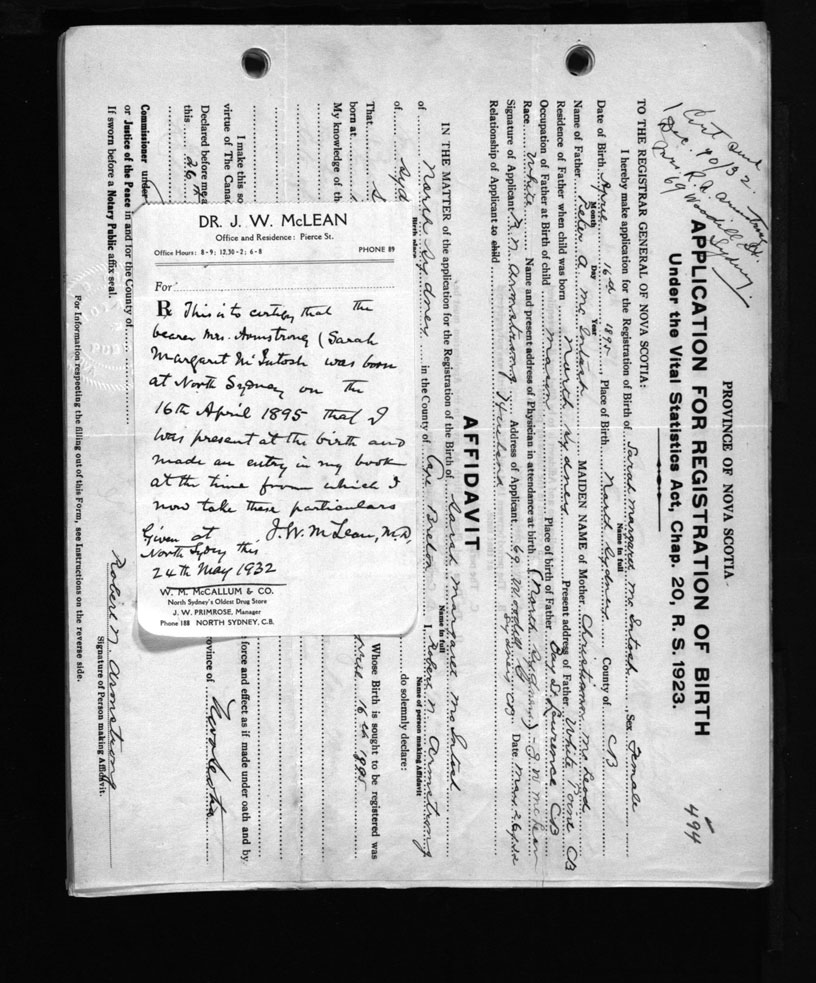 PROVINCE OF NOVA SCOTIA
APPLICATION FOR REGISTRATION OF BIRTH
Under the Vital Statistics Act, Chap. 20, R. S. 1923.
494
Dec. 10/32
Mrs R. N. Armstrong
69 Woodill St.
Sydney.
TO THE REGISTRAR GENERAL OF NOVA SCOTIA:
I hereby make application for the Registration of Birth of Sarah Margaret McIntosh Sex Female
Name in full
Date of Birth April 16th 1895 Place of Birth North Sydney County of CB
Month Day Year
Name of Father Peter A. McIntosh MAIDEN NAME of Mother Christianna McLeod
Residence of Father when child was born North Sydney Present address of Father White Point CB
Occupation of Father at Birth of child Mason Place of birth of Father Bay St Lawrence CB
Race White Name and present address of Physician in attendance at birth (North Sydney) - J W McLean
Signature of Applicant R N Armstrong Address of Applicant 69 Woodill St Sydney CB Date May 26
Relationship of Applicant to child Husband
AFFIDAVIT
IN THE MATTER of the application for the Registration of the Birth of Sarah Margaret McIntosh
Name in full
of North Sydney in the County of Cape Breton I, Robert N Armstrong
Birth where Name of person making Affidavit
of Syd do solemnly declare:
That S Whose Birth is sought to be registered was
born at April 16th 1895
My knowledge of th
I make this so force and effect as if made under oath and by
virtue of The Cana
Declared before me at rovince of Nova Scotia
this 26th
Commissioner under
or Justice of the Peace in and for the County of
If sworn before a Notary Public affix seal.
Robert N. Armstrong
Signature of Person making Affidavit.
For Information respecting the filling out of this Form, see Instructions on the reverse side.
DR. J. W. McLEAN
Office and Residence: Pierce St.
Office Hours: 8-9; 12.30-2; 6-8 PHONE 89
For
℞ This is to certify that the
bearer Mrs. Armstrong (Sarah
Margaret McIntosh was born
at North Sydney on the
16th April 1895 that I
was present at the birth and
made an entry in my book
at the time from which I
now take these particulars
Given at J. W. McLean, M.D.
North Sydney this
24th May 1932
W. M. McCALLUM & CO.
North Sydney's Oldest Drug Store
J. W. PRIMROSE, Manager
Phone 188 NORTH SYDNEY, C.B.